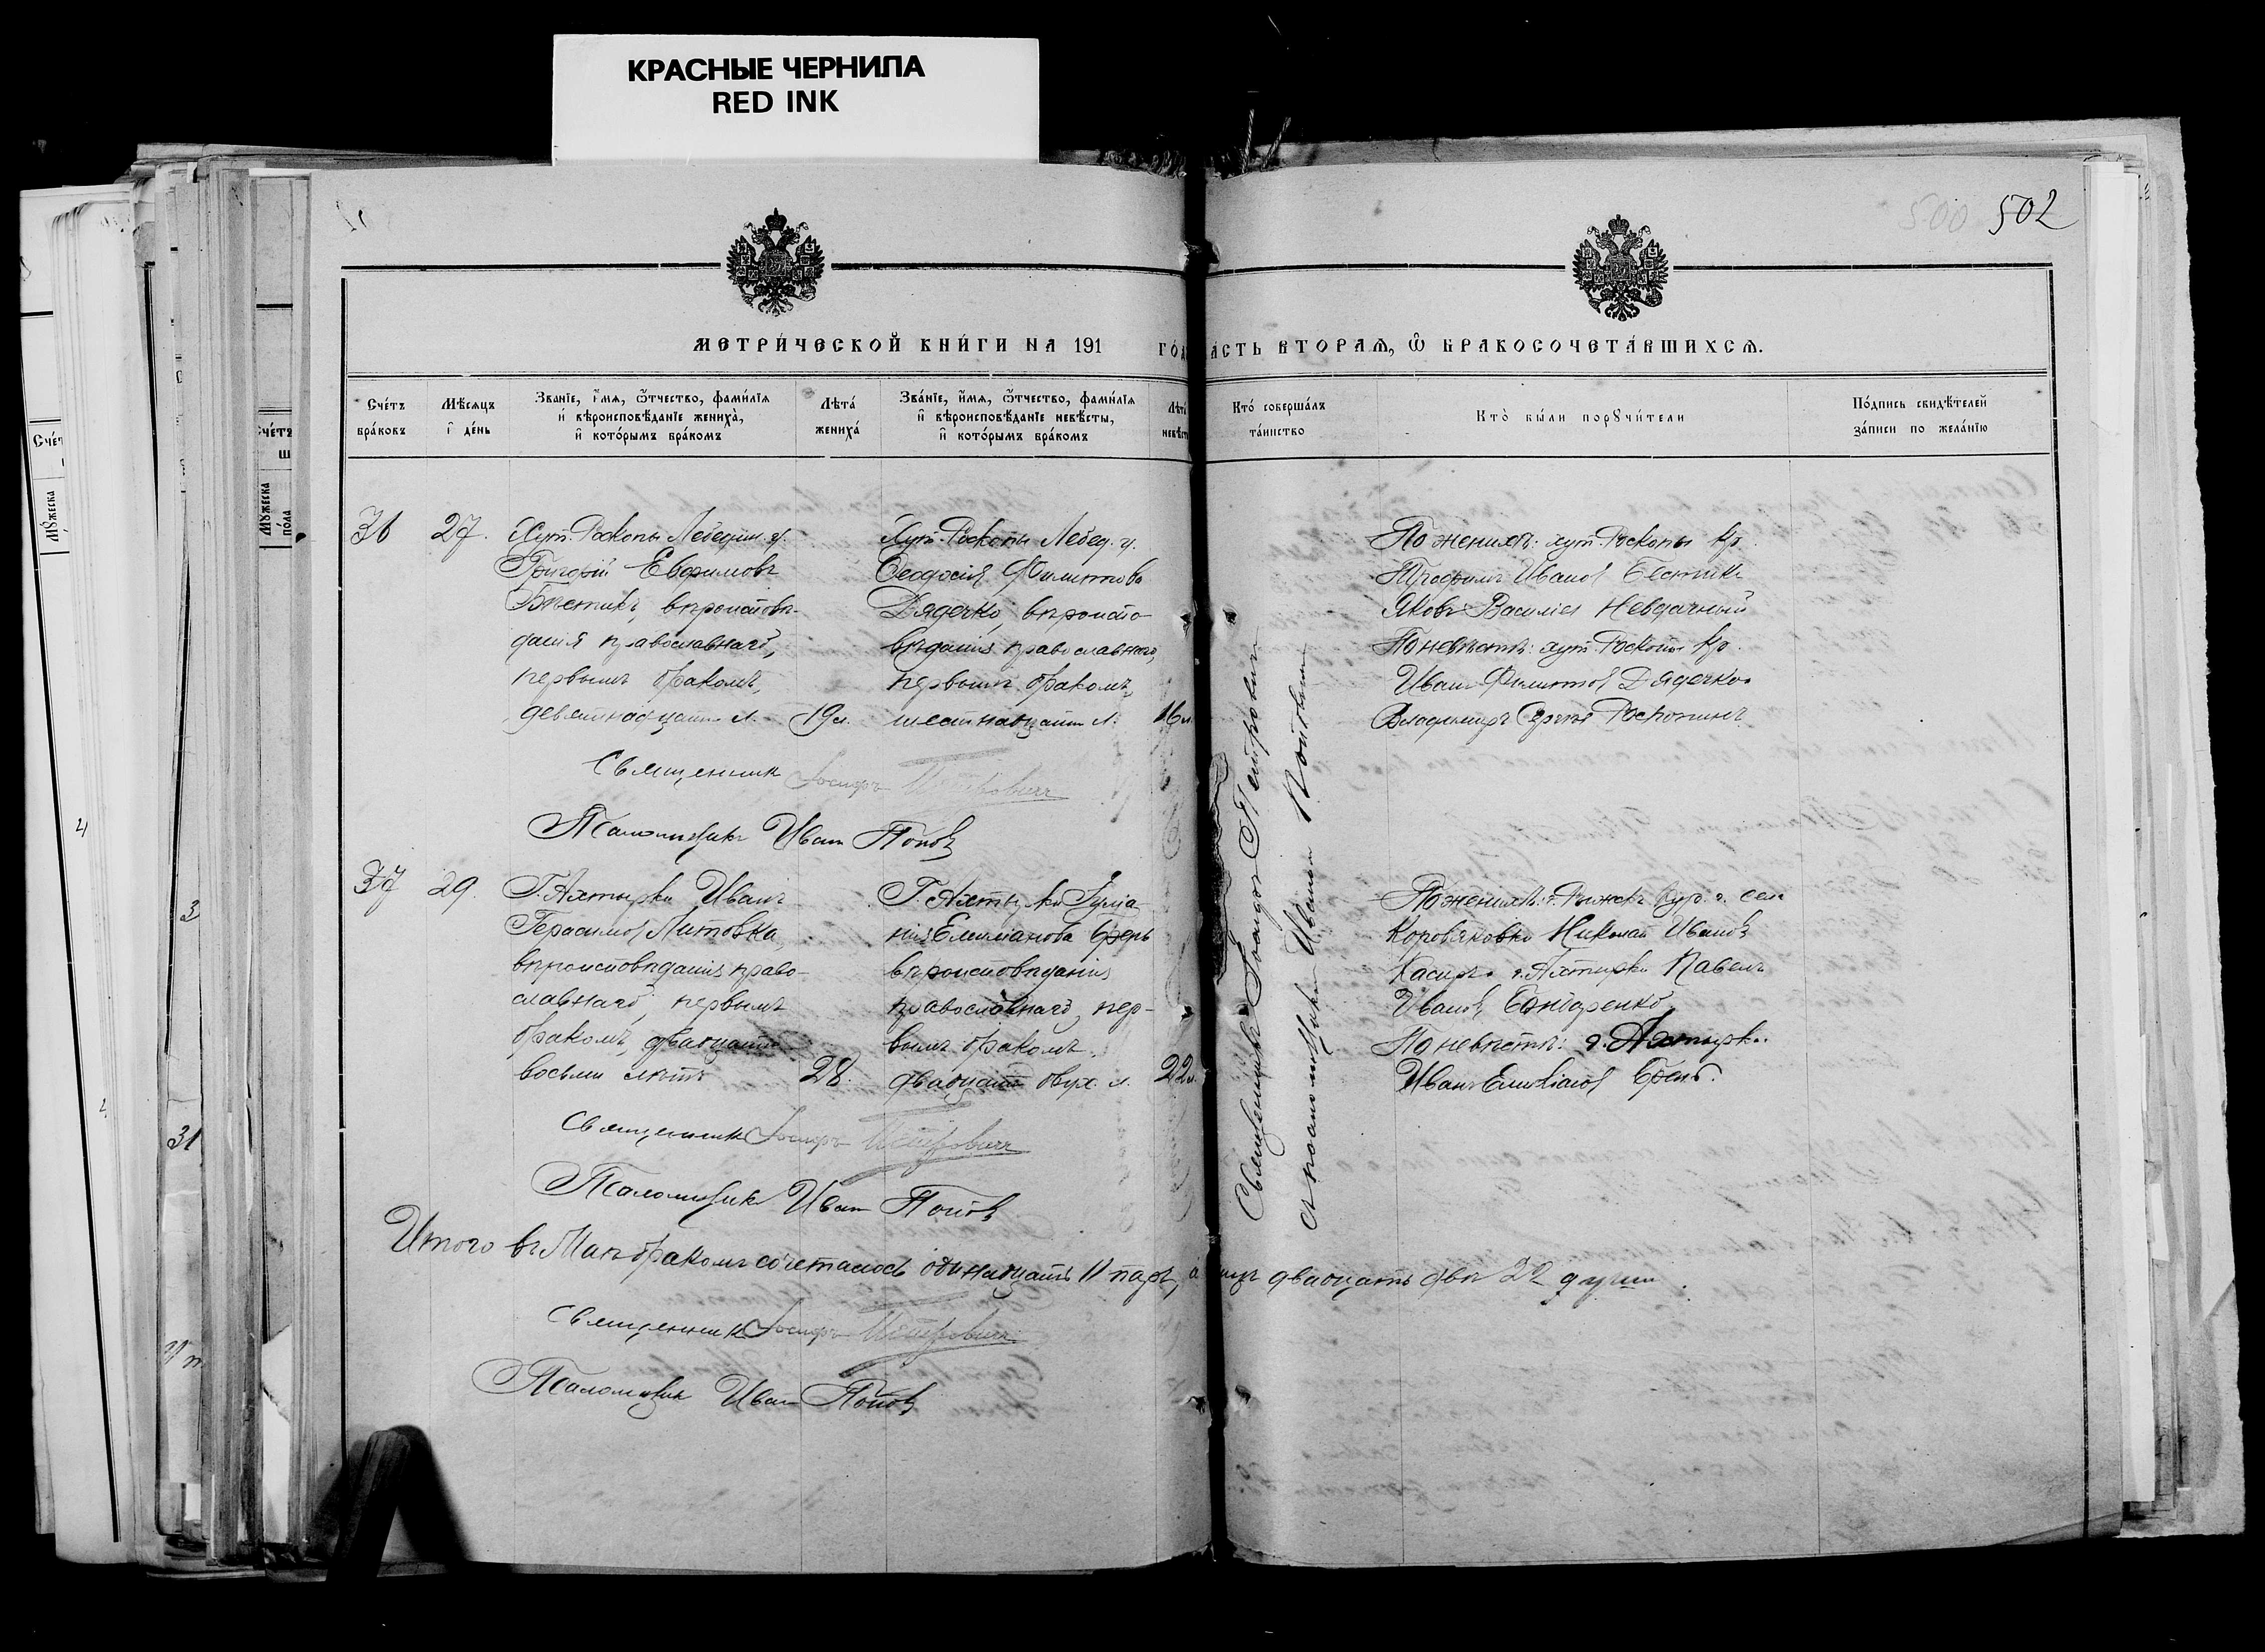 КРАСНЫЕ ЧЕРНИЛА
RED INK
500 502
МЕТРИ́ЧЕСКОЙ КНИ́ГИ НА 191 ГО́Д
А́СТЬ ВТОРА́Ѧ, Ѽ БРАКОСОЧЕТА́ВШИХСѦ.
Сче́тъ бра́ковъ
Мѣ́сяцъ и де́нь
Зва́нїе, и́мѧ, ѻ́тчество, фами́лїѧ
и вѣроисповѣ́данїе жениха̀,
и кото́рымъ бра́комъ
Лѣта́ жениха́
Зва́нїе, и́мѧ, ѻ́тчество, фами́лїѧ
и вѣроисповѣ́данїе невѣ́сты,
и кото́рымъ бра́комъ
Лѣта́ невѣ́ст
Кто̀ соверша́лъ
та́инство
Кто̀ бы́ли порꙋчи́тели
По́дпись свидѣ́телей
за́писи по жела́нїю
36 27. Хут. Роскопы Лебедин. у.
Григорій Евфимовъ
Бѣстикъ, вѣроисповѣ-
данія православнаго,
первымъ бракомъ,
девятнадцати л. 19 л.
Хут. Роскопы Лебед. у.
Ѳеодосія Филиппова
Дядечко, вѣроиспо-
вѣданія православнаго,
первымъ бракомъ,
шестнадцати л. 16 л.
По женихѣ: хут. Роскопы кр.
Трофимъ Ивановъ Бестикъ
Яковъ Василіев Невдачный
По невѣстѣ: хут. Роскопы кр.
Иванъ Филиппов Дядечко
Владимиръ Роскопинъ
Священникъ Іосифъ Петровичъ
Псаломщикъ Иванъ Поповъ
37 29. Г. Ахтырки Иванъ
Герасимов Литовка
вѣроисповѣданія право-
славнаго, первымъ
бракомъ, двадцати
восьми лѣтъ 28.
Г. Ахтырки Іуліа
нія Емиліанова Брень
вѣроисповѣданія
православнаго, пер-
вымъ бракомъ,
двадцати двухъ л. 22 л.
По женихѣ: г. сел.
Николай Ивановъ
г. Ахтырки Павелъ
Ивановъ Бондаренко
По невѣстѣ: г. Ахтырки
Иванъ Емиліанов Брень.
Священникъ Іосифъ Петровичъ
Псаломщикъ Иванъ Поповъ
Священникъ Іосифъ Петровичъ
съ псаломщикомъ Иваномъ Поповымъ
Итого въ Маѣ бракомъ сочеталось одинадцать 11 паръ, а лицъ двадцать двѣ 22 души.
Священникъ Іосифъ Петровичъ
Псаломщикъ Иванъ Поповъ